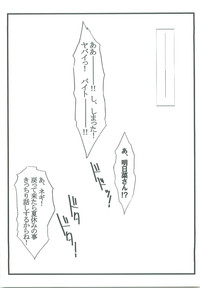 ああ――!!
ヤバイっ! し、しまった!
バイト――!!
あ、明日菜さん!?
あ、ネギ!
戻って来たら夏休みの事
きっちり話しするからね!
ドドドド